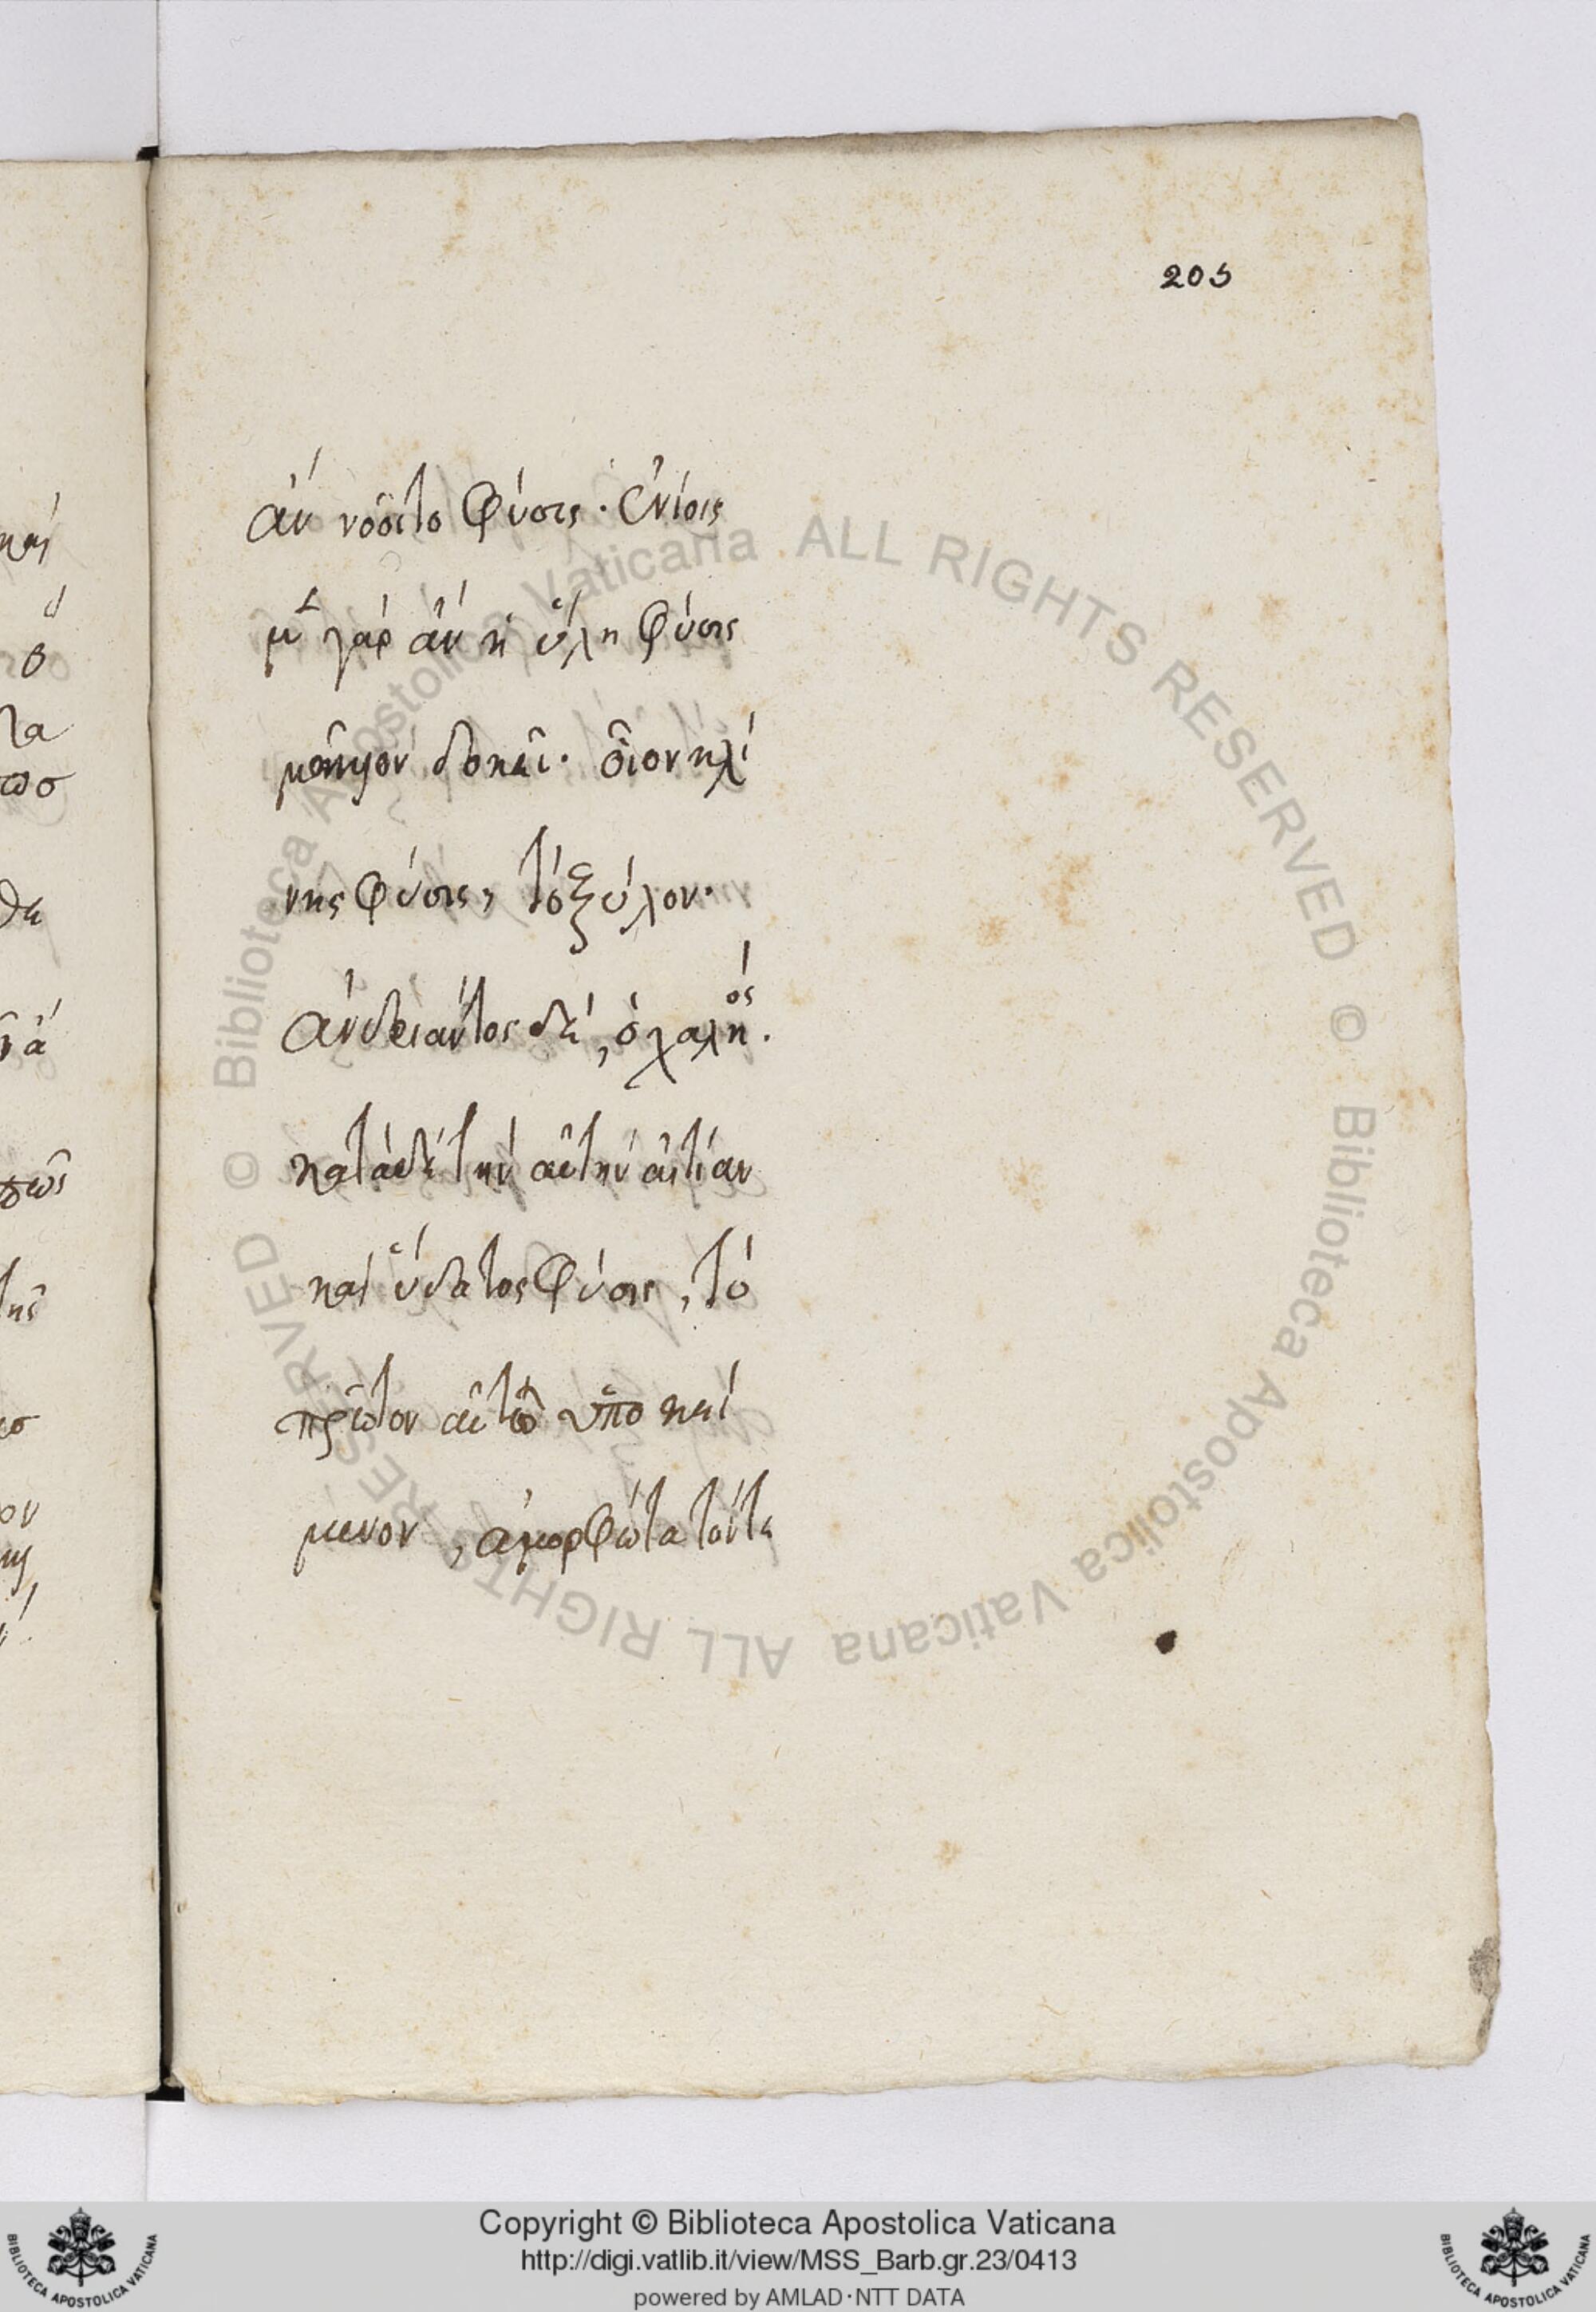 205
ἂν νοοῖτο φύσις. ἐνίοις
μὲν γὰρ ἂν ἡ ὕλη φύσις
μᾶλλον δοκεῖ. οἷον κλί
νης φύσις, τὸ ξύλον.
ἀνδριάντος δὲ, ὁ χαλκός.
κατὰ δὲ τὴν αὐτὴν αἰτίαν
καὶ ὕδατος φύσις, τὸ
πρῶτον αὐτῷ ὑποκεί
μενον, ἀμορφώτατόν τε
© Biblioteca Apostolica Vaticana ALL RIGHTS RESERVED © Biblioteca Apostolica Vaticana ALL RIGHTS RESERVED
Copyright © Biblioteca Apostolica Vaticana
http://digi.vatlib.it/view/MSS_Barb.gr.23/0413
powered by AMLAD·NTT DATA
BIBLIOTECA APOSTOLICA VATICANA
BIBLIOTECA APOSTOLICA VATICANA